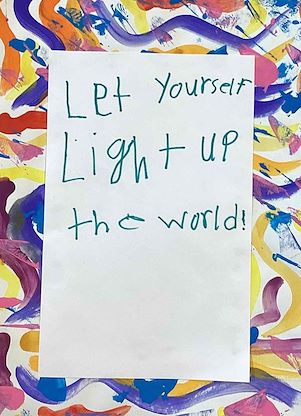 Let Yourself
Light up
the world!